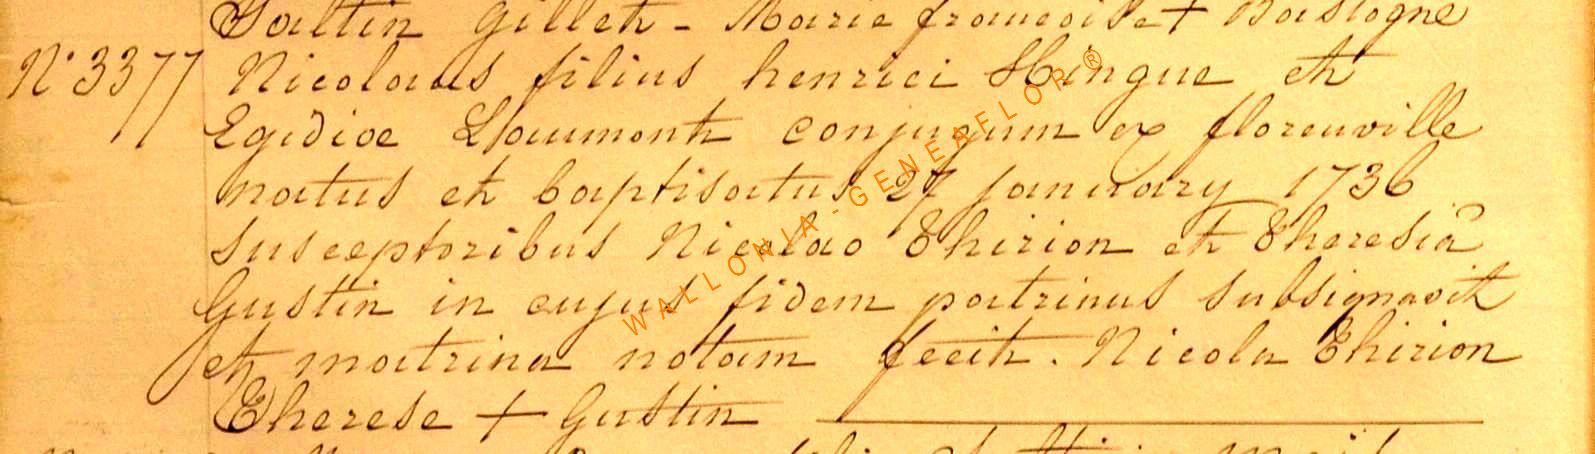 Gillet - Marie francoise + Bastogne
N° 3377 Nicolaus filius henrici Hingue et
Egidiae Laumont conjugum ex florenville
natus et baptisatus 27 january 1736
susceptoribus Nicolao Thirion et Theresia
Gustin in cujus fidem patrinus subsignavit
et matrina notam fecit. Nicola Thirion
Therese + Gustin
WALLONIA-GENEAFLOR ®